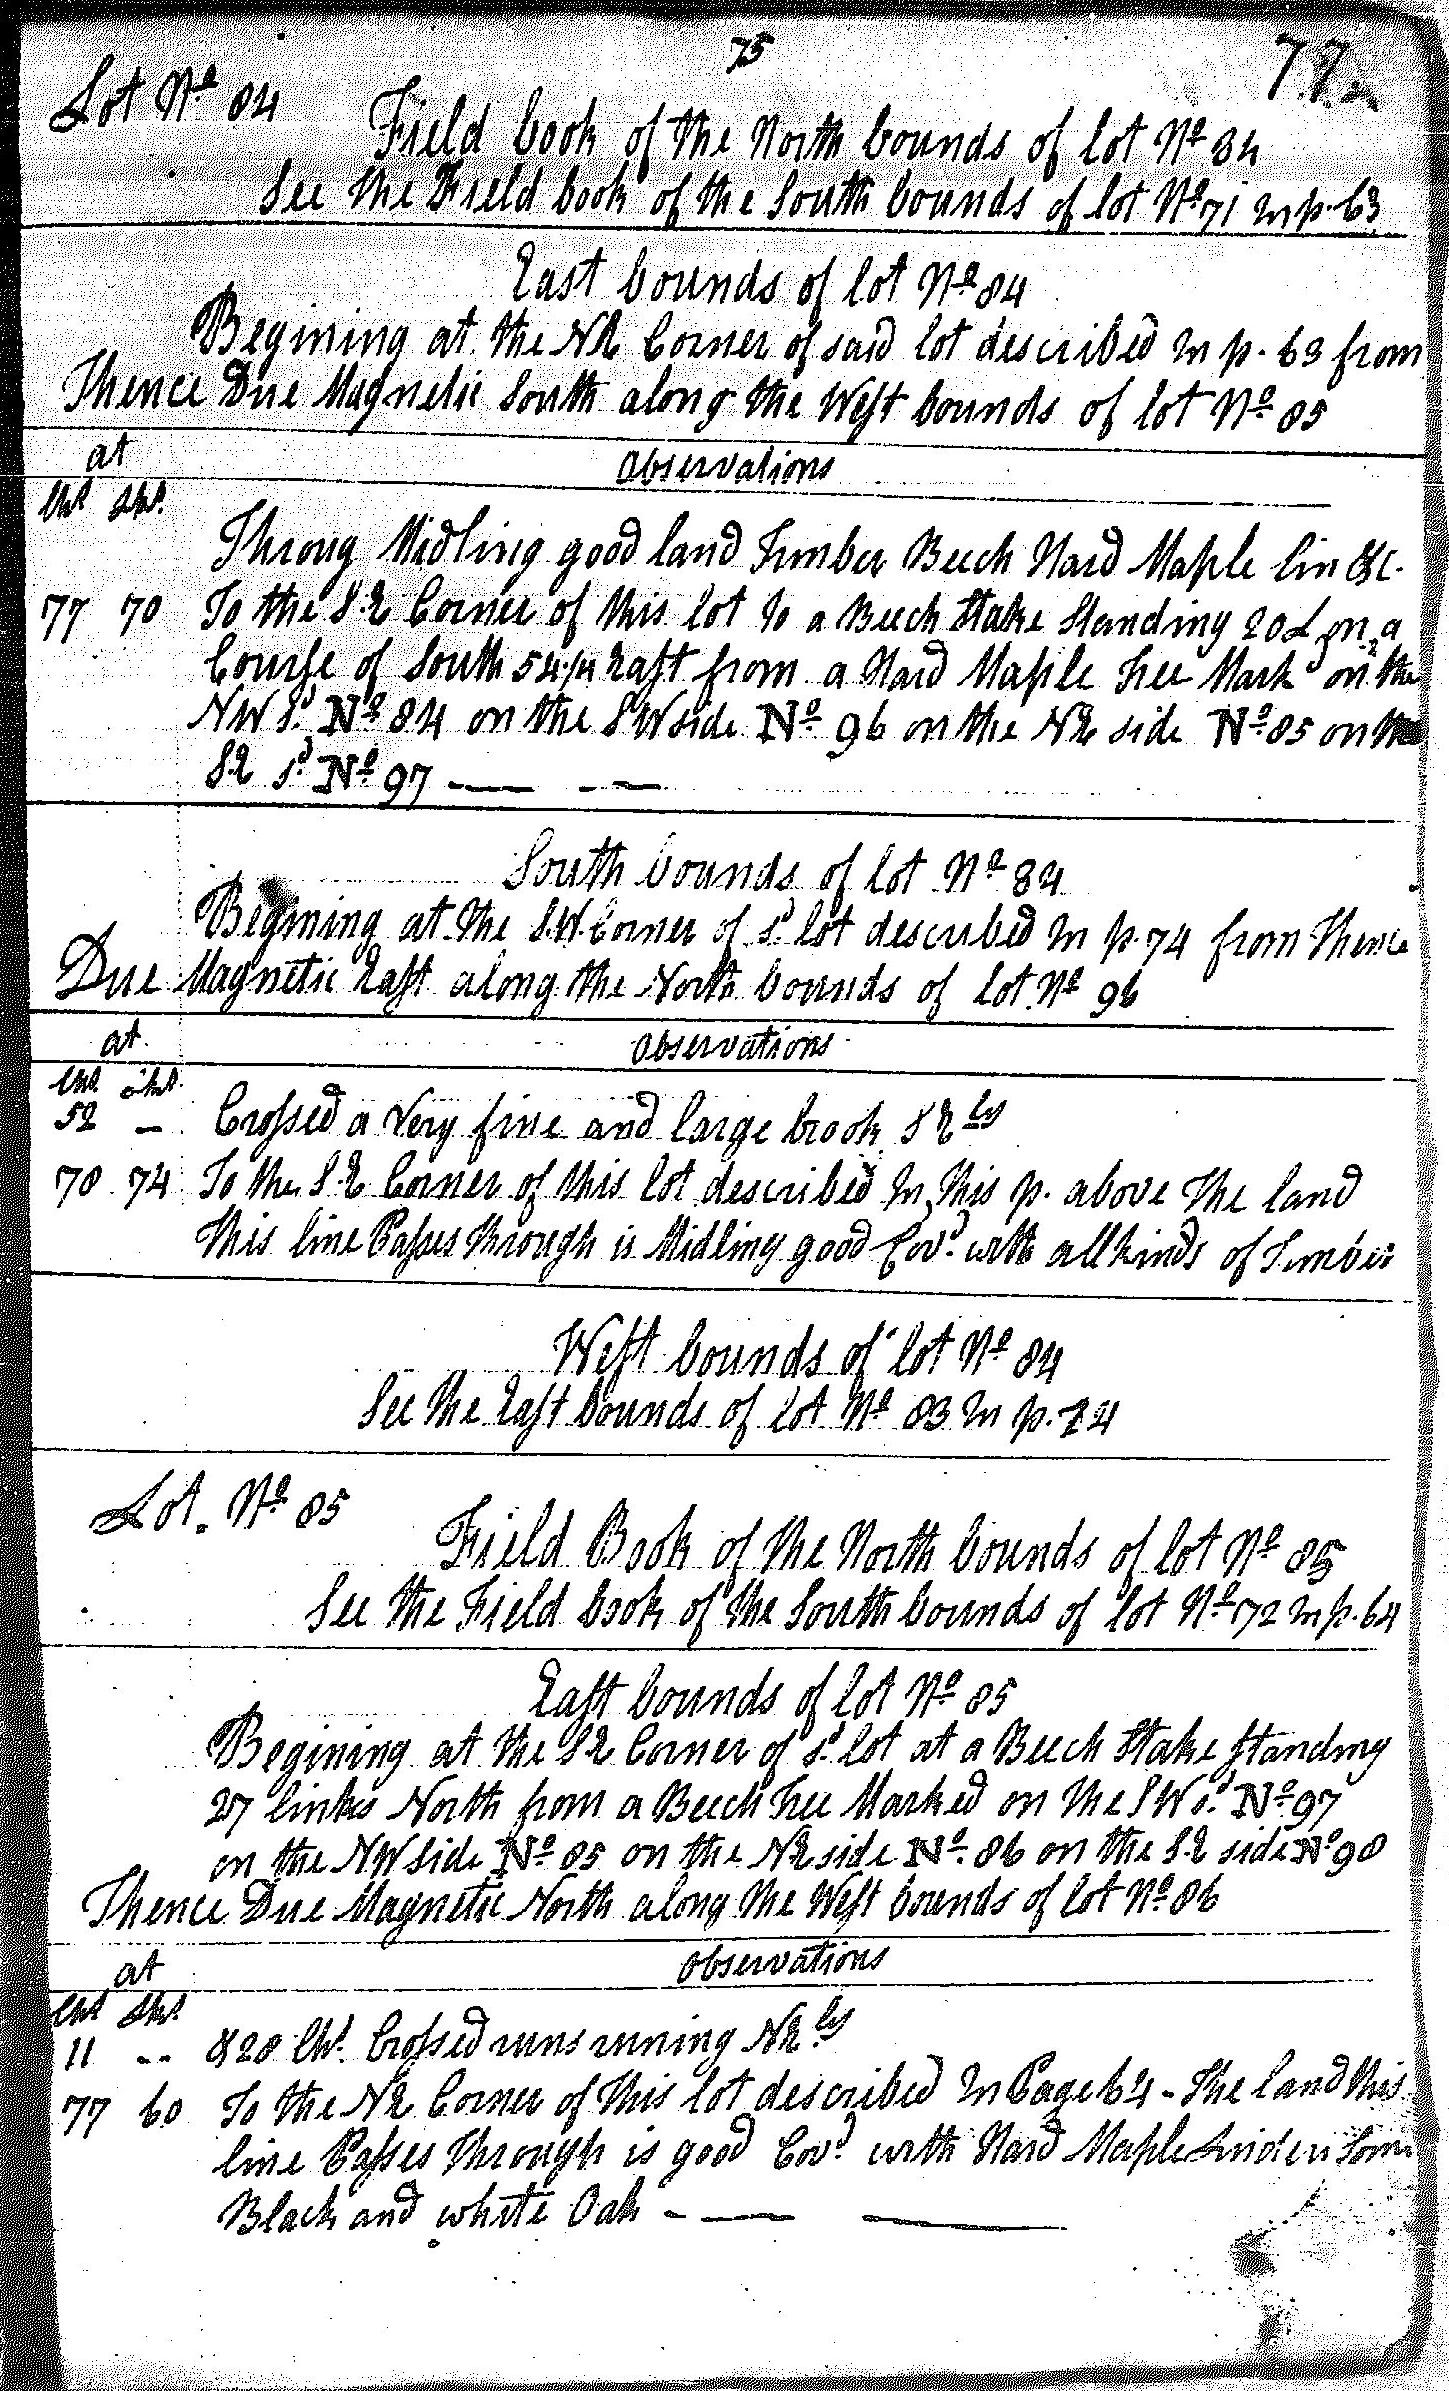 75
77
Lot No 84
Field book of the North bounds of lot No 84
See the Field book of the South bounds of lot No 71 in p. 63
East bounds of lot No 84
Begining at the NE Corner of said lot described in p. 63 from
Thence Due Magnetic South along the West bounds of lot No 85
at
Observations
Chs Lks.
Throug Midling good land Timber Beech Hard Maple Lin &c.
77 70 To the S.E Corner of this lot to a Beech Stake Standing 20 L on a
Course of South 54 1/4 East from a Hard Maple Tree Markd on the
NW sd No 84 on the SW side No 96 on the NE side No 85 on the
SE sd No 97
South bounds of lot No 84
Begining at the S.W. Corner of sd lot described in p. 74 from Thence
Due Magnetic East along the North bounds of lot No 96
at
Observations
Chs Lks.
52 — Crossed a Very fine and large brook SEly
70 74 To the S.E Corner of this lot described in this p. above The land
this line Passes through is Midling good Covd with all kinds of Timber
West bounds of lot No 84
See the East bounds of lot No 83 in p. 74
Lot. No 85
Field Book of the North bounds of lot No 85
See the Field book of the South bounds of lot No 72 in p. 64
East bounds of lot No 85
Begining at the SE Corner of sd lot at a Beech Stake Standing
27 links North from a Beech Tree Marked on the SW sd No 97
on the NW side No 85 on the NE side No 86 on the S.E side No 98
Thence Due Magnetic North along the West bounds of lot No 86
at
Observations
Chs Lks.
11 -- &28 Chs. Crossed runs runing NEly
77 60 To the NE Corner of this lot described in Page 64 - The land this
line Passes through is good Covd with Hard Maple Linden Some
Black and white Oak